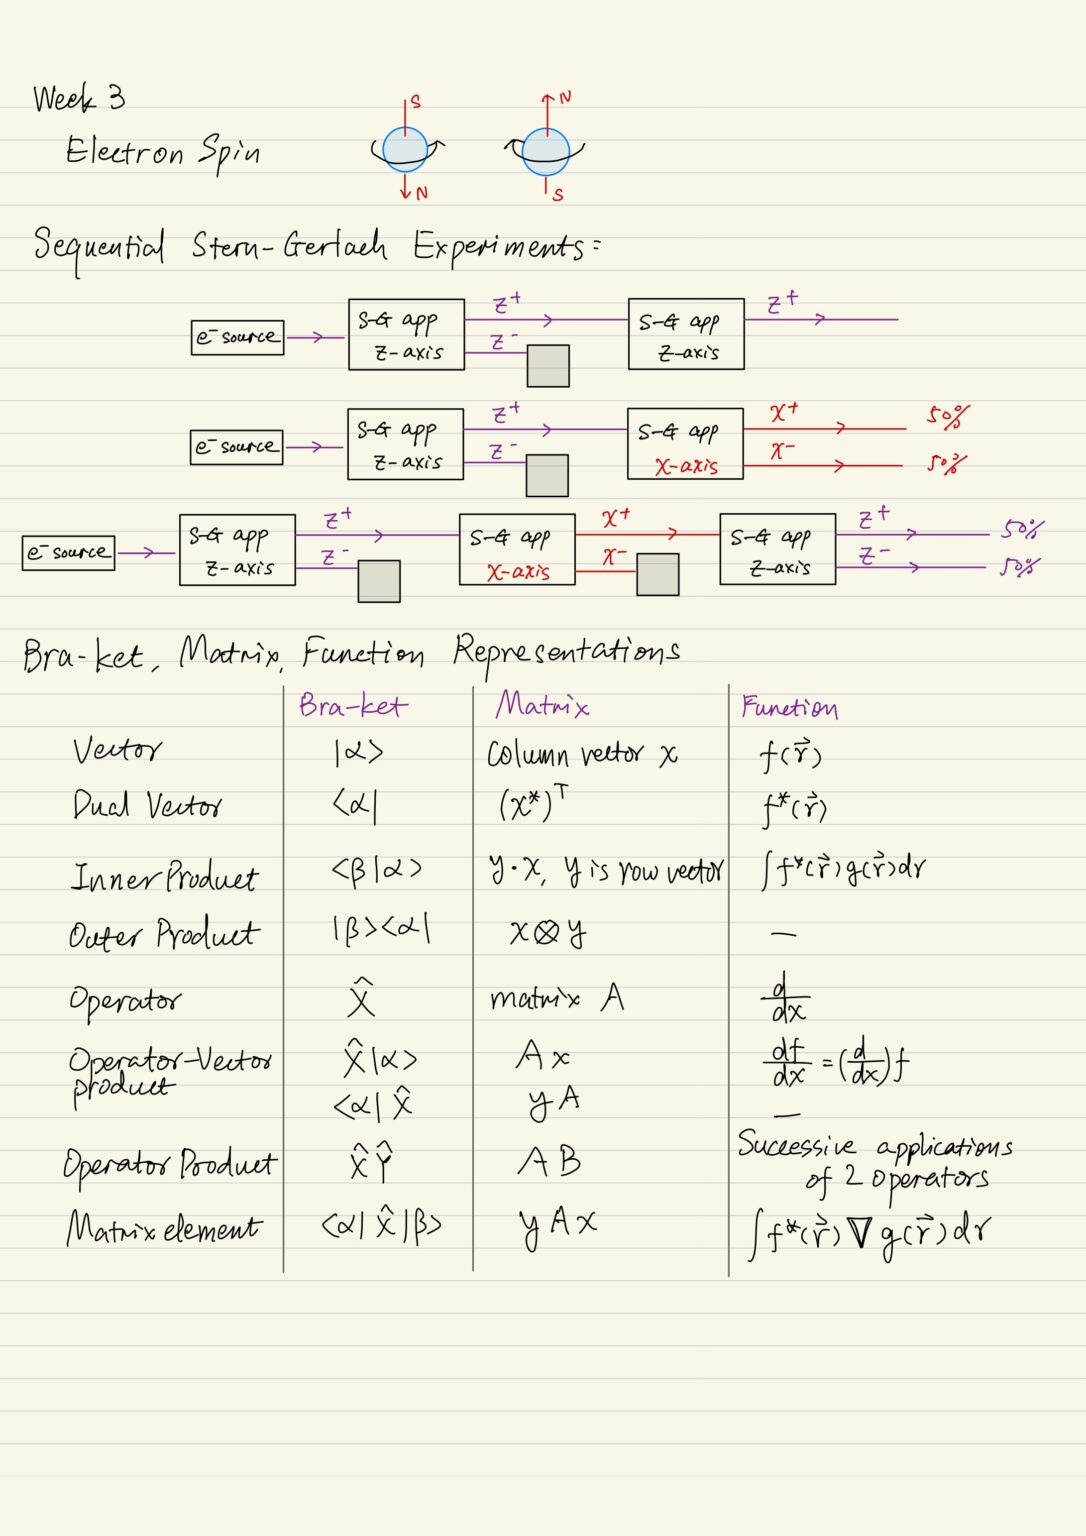 Week 3
S
N
Electron Spin
N
S
Sequential Stern-Gerlach Experiments:
e⁻ source
S-G app
Z-axis
Z+
Z-
S-G app
Z-axis
Z+
e⁻ source
S-G app
Z-axis
Z+
Z-
S-G app
X-axis
X+
50%
X-
50%
e⁻ source
S-G app
Z-axis
Z+
Z-
S-G app
X-axis
X+
X-
S-G app
Z-axis
Z+
50%
Z-
50%
Bra-ket, Matrix, Function Representations
Bra-ket Matrix Function
Vector |α> Column vector x f(r⃗)
Dual Vector <α| (x*)ᵀ f*(r⃗)
Inner Product <β|α> y·x, y is row vector ∫f*(r⃗)g(r⃗)dr
Outer Product |β><α| x⊗y —
Operator X̂ matrix A d/dx
Operator-Vector product X̂|α> Ax df/dx = (d/dx)f
<α|X̂ yA —
Operator Product X̂Ŷ AB Successive applications of 2 operators
Matrix element <α|X̂|β> yAx ∫f*(r⃗)∇g(r⃗)dr